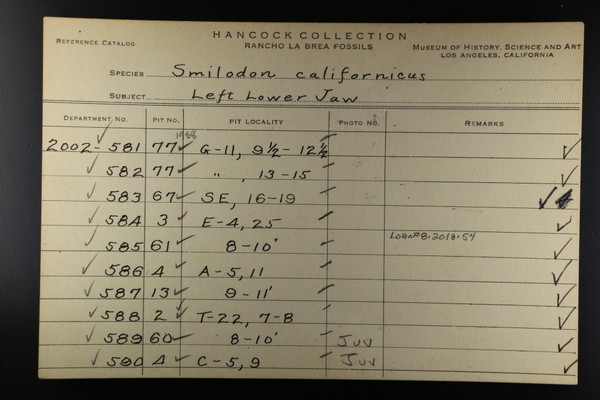 HANCOCK COLLECTION
REFERENCE CATALOG RANCHO LA BREA FOSSILS MUSEUM OF HISTORY, SCIENCE AND ART
LOS ANGELES, CALIFORNIA
SPECIES Smilodon californicus
SUBJECT Left Lower Jaw
DEPARTMENT NO. PIT NO. PIT LOCALITY PHOTO NO. REMARKS
2002-581 77 G-11, 9½-12½
582 77 " , 13-15
583 67 SE, 16-19
584 3 E-4, 25
Loan#8.2018.54
585 61 8-10'
586 4 A-5, 11
587 13 9-11'
588 2 T-22, 7-8
589 60 8-10' Juv
590 4 C-5, 9 Juv